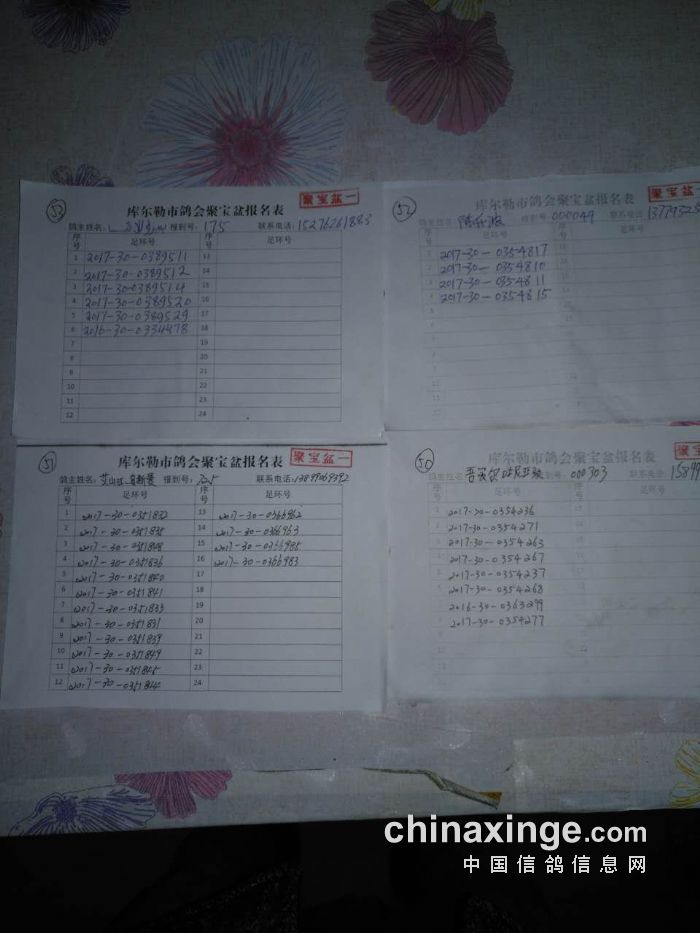 53
聚宝盆一
库尔勒市鸽会聚宝盆报名表
鸽主姓名: 报到号: 175 联系电话: 15276261883
序号 足环号 序号 足环号
1 2017-30-0389511 13
2 2017-30-0389512 14
3 2017-30-0389514 15
4 2017-30-0389520 16
5 2017-30-0389529 17
6 2016-30-0334478 18
7 19
8 20
9 21
10 22
11 23
12 24
52
聚宝盆一
库尔勒市鸽会聚宝盆报名表
鸽主姓名: 报到号: 000049 联系电话:
序号 足环号 序号 足环号
2017-30-0354817
2017-30-0354810
2017-30-0354811
2017-30-0354815
51
聚宝盆一
库尔勒市鸽会聚宝盆报名表
鸽主姓名: 报到号: 联系电话:
序号 足环号 序号 足环号
1 2017-30-0351832 13 2017-30-0366962
2 2017-30-0351835 14 2017-30-0366963
3 2017-30-0351808 15 2017-30-0366985
4 2017-30-0351836 16 2017-30-0366983
5 2017-30-0351840 17
6 2017-30-0351841 18
7 2017-30-0351833 19
8 2017-30-0351831 20
9 2017-30-0351839 21
10 2017-30-0351849 22
11 2017-30-0351845 23
12 2017-30-0351844 24
50
聚宝盆一
库尔勒市鸽会聚宝盆报名表
鸽主姓名: 报到号: 000303 联系电话: 15899
序号 足环号 序号 足环号
2017-30-0354236
2017-30-0354271
2017-30-0354263
2017-30-0354267
2017-30-0354237
2017-30-0354268
2016-30-0363299
2017-30-0354277
chinaxinge.com
中国信鸽信息网